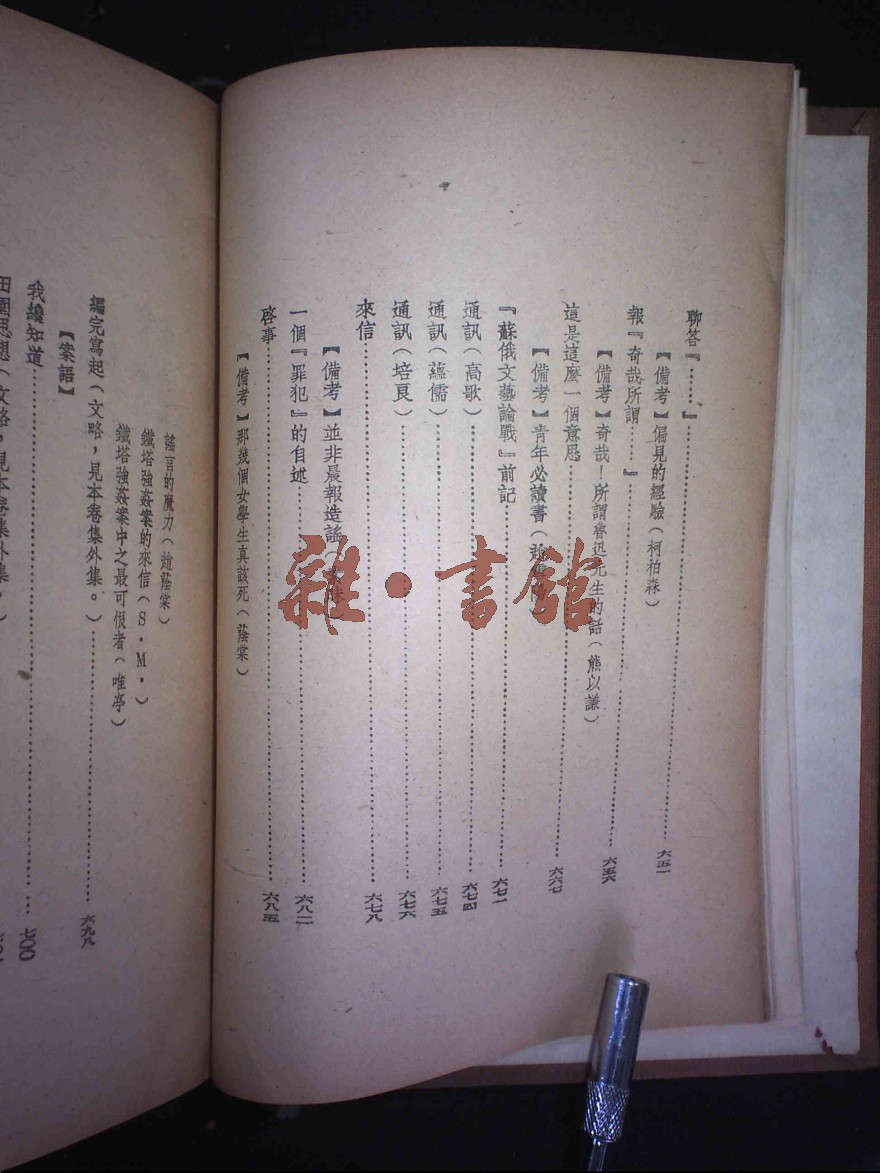 聊答『……』……六五一
【備考】偏見的經驗(柯柏森)
報『奇哉所謂……』……六五六
【備考】奇哉!所謂魯迅先生的話(熊以謙)
這是這麼一個意思……六六七
【備考】青年必讀書(趙
『蘇俄文藝論戰』前記……六七一
通訊(高歌)……六七四
通訊(蘊儒)……六七五
通訊(培良)……六七六
來信……六七八
【備考】並非晨報造謠(
一個『罪犯』的自述……六八二
啓事……六八五
【備考】那幾個女學生真該死(蔭棠)
謠言的魔力(趙蔭棠)
鐵塔強姦案的來信(S.M.)
鐵塔強姦案中之最可恨者(唯亭)
編完寫起(文略,見本卷集外集。)……六九八
【案語】
我纔知道……七〇〇
田園思想(文略,見本卷集外集。)
雜·書館